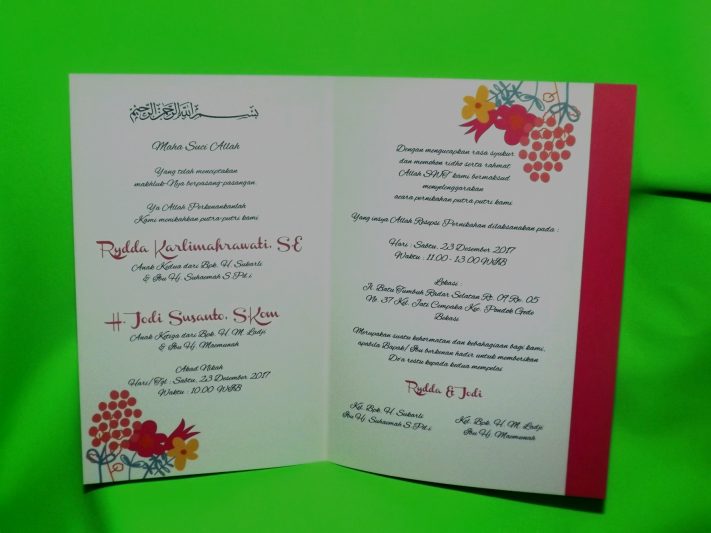 بسم الله الرحمن الرحيم
Maha Suci Allah
Yang telah menciptakan
makhluk-Nya berpasang-pasangan.
Ya Allah Perkenankanlah
Kami menikahkan putra-putri kami
Rydda Karlimahrawati, SE
Anak Kedua dari Bpk. H. Sukarli
& Ibu Hj. Suhaemah S.Pd.i.
H. Jodi Susanto, SKom
Anak Ketiga dari Bpk. H. M. Ladjo
& Ibu Hj. Maemunah
Akad Nikah
Hari/Tgl : Sabtu, 23 Desember 2017
Waktu : 10.00 WIB
Dengan mengucapkan rasa syukur
dan memohon ridho serta rahmat
Allah SWT kami bermaksud
menyelenggarakan
acara pernikahan putra putri kami
Yang insya Allah Resepsi Pernikahan dilaksanakan pada :
Hari : Sabtu, 23 Desember 2017
Waktu : 11.00 - 13.00 WIB
Lokasi :
Jl. Batu Tumbuh Radar Selatan Rt. 09 Rw. 05
No. 37 Kel. Jati Cempaka Kec. Pondok Gede
Bekasi
Merupakan suatu kehormatan dan kebahagiaan bagi kami,
apabila Bapak/ Ibu berkenan hadir untuk memberikan
Do'a restu kepada kedua mempelai
Rydda & Jodi
Kel. Bpk. H. Sukarli
Ibu Hj. Suhaemah S.Pd.i.
Kel. Bpk. H. M. Ladjo
Ibu Hj. Maemunah